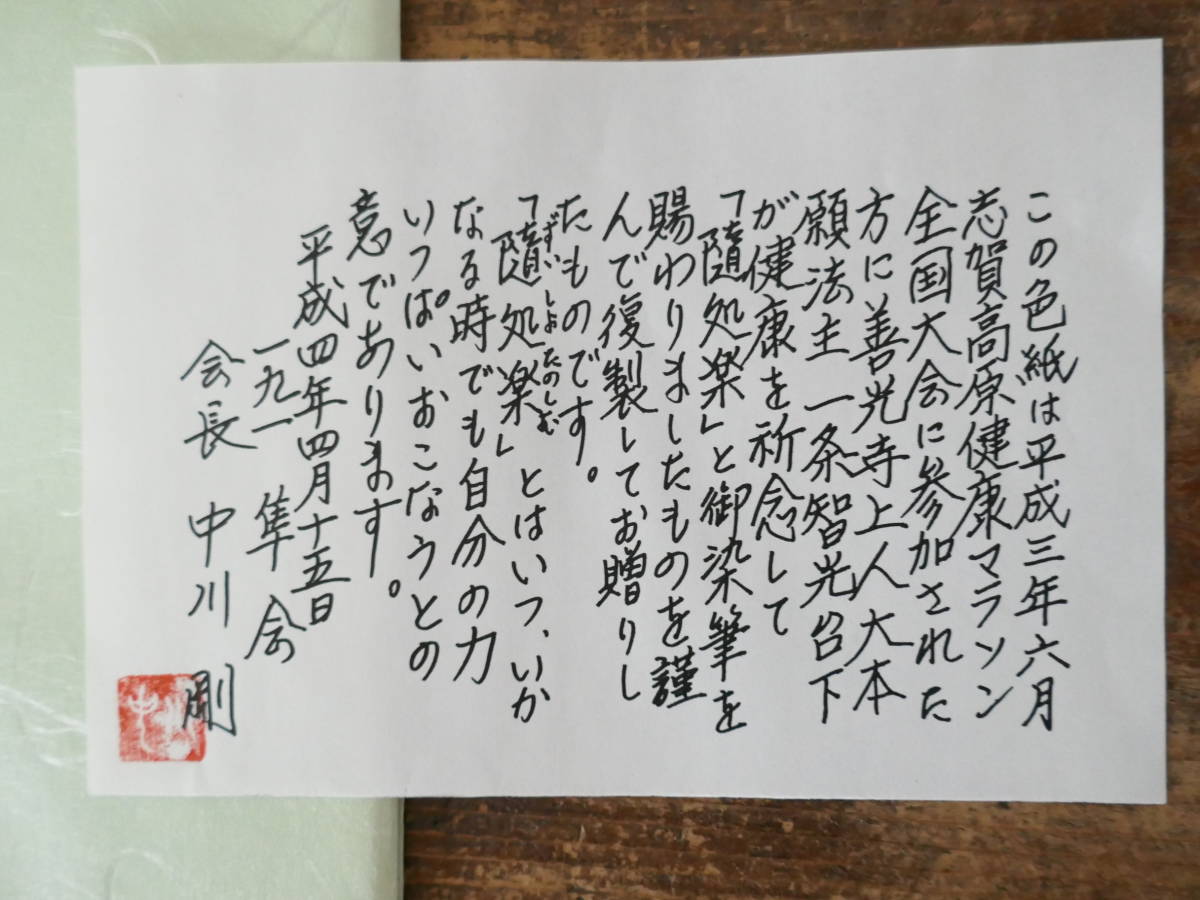 この色紙は平成三年六月
志賀高原健康マラソン
全国大会に参加された
方に善光寺上人大本
願法主一条智光台下
が健康を祈念して
「随処楽」と御染筆を
賜わりましたものを謹
んで復製してお贈りし
たものです。
「隨処楽」とはいつ、いか
ずいしょたのしむ
なる時でも自分の力
いっぱいおこなうとの
意であります。
平成四年四月十五日
一九一 隼会
会長 中川 剛